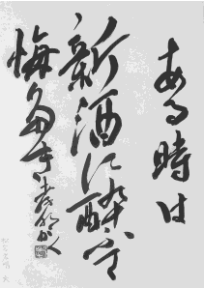 ある時は
新酒に酔て
悔多き